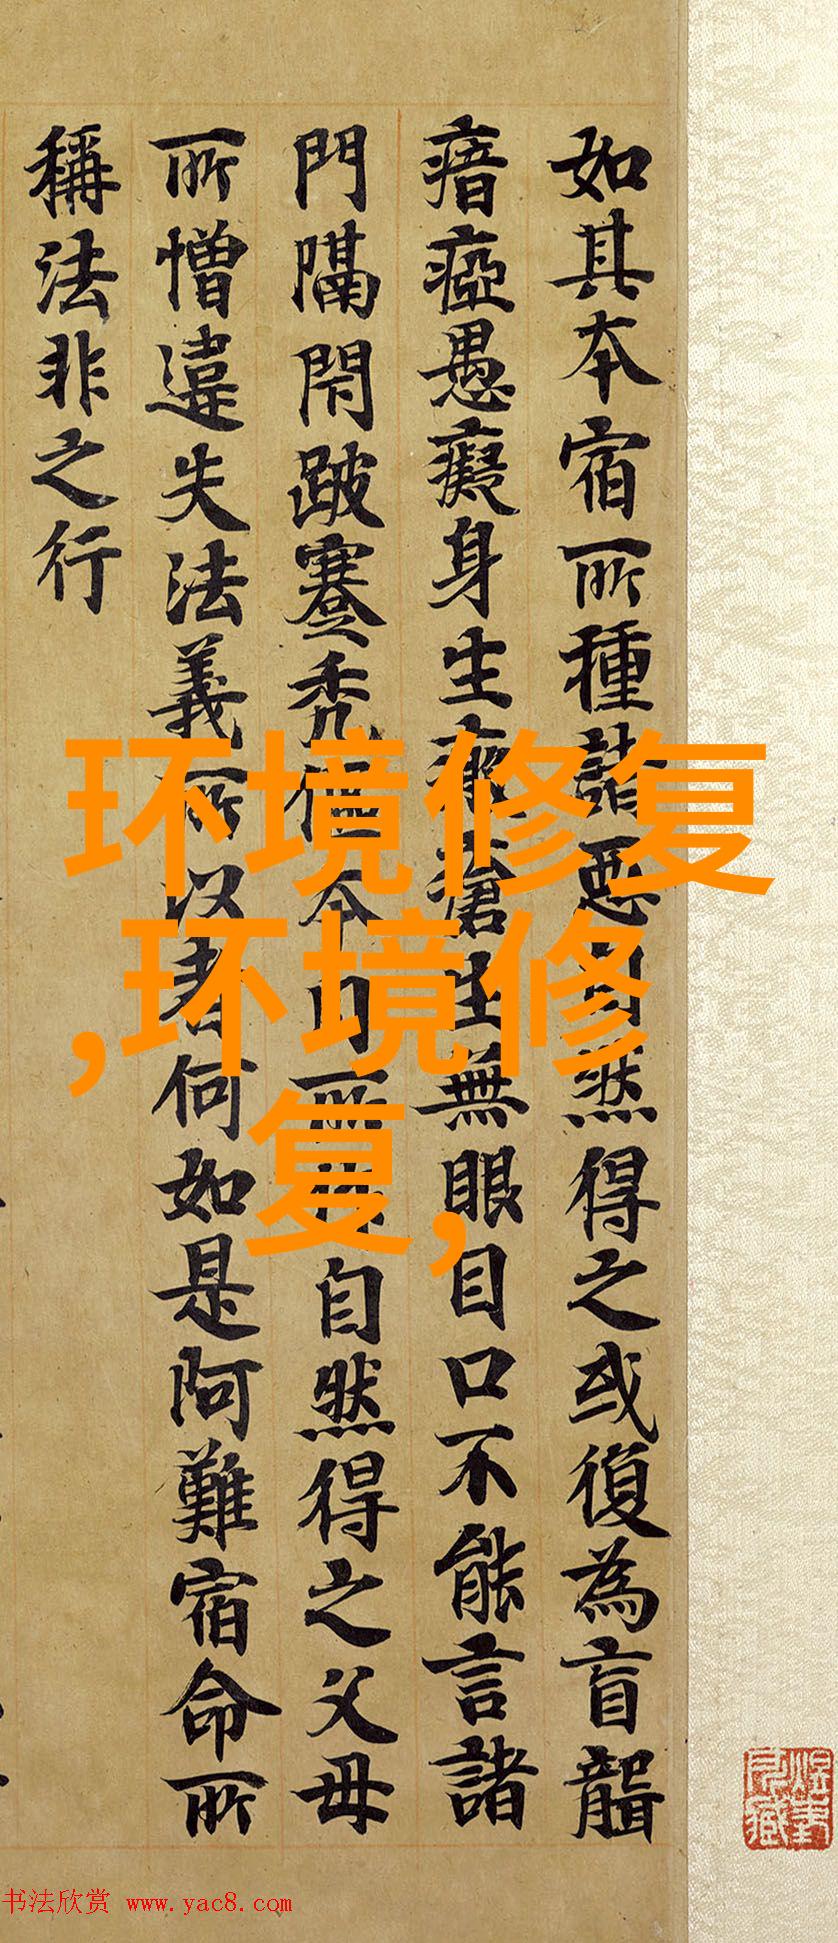 如其本宿所種諸惡自然得之或復為盲聾
瘖瘂愚癡身生瘡生無眼目口不能言諸
門隔閇跛蹇禿自所自然得之父母
所憎違失法義所以者何如是阿難宿命所
稱法非之行
环境修复
,环境修
复,
书法欣赏 www.yac8.com